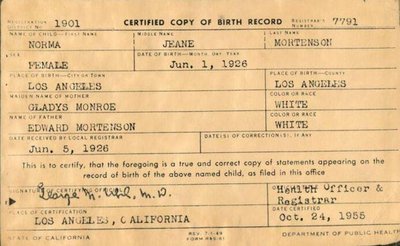 REGISTRATION DISTRICT NO. 1901 CERTIFIED COPY OF BIRTH RECORD REGISTRAR'S NUMBER 7791
NAME OF CHILD—FIRST NAME MIDDLE NAME LAST NAME
NORMA JEANE MORTENSON
SEX DATE OF BIRTH—MONTH DAY YEAR
FEMALE Jun. 1, 1926
PLACE OF BIRTH—CITY OR TOWN PLACE OF BIRTH—COUNTY
LOS ANGELES LOS ANGELES
MAIDEN NAME OF MOTHER COLOR OR RACE
GLADYS MONROE WHITE
NAME OF FATHER COLOR OR RACE
EDWARD MORTENSON WHITE
DATE RECEIVED BY LOCAL REGISTRAR DATE(S) OF CORRECTION(S), IF ANY
Jun. 5, 1926
This is to certify, that the foregoing is a true and correct copy of statements appearing on
the record of birth of the above named child, as filed in this office
SIGNATURE OF CERTIFYING OFFICER
George M. M.D. Health Officer &
Registrar
PLACE OF CERTIFICATION
LOS ANGELES, CALIFORNIA Oct. 24, 1955
STATE OF CALIFORNIA REV. 7-1-49 DEPARTMENT OF PUBLIC HEALTH
FORM